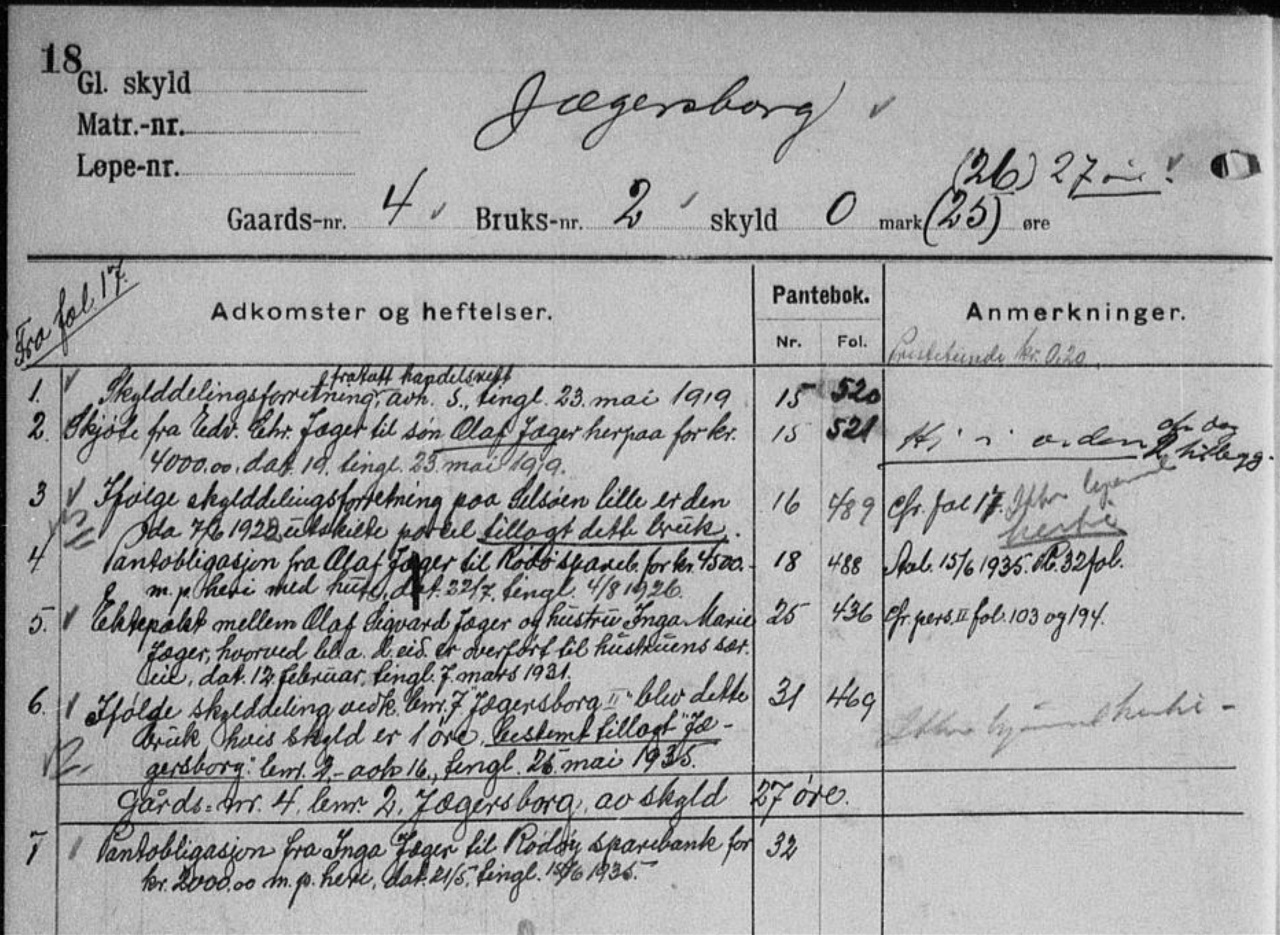 18
Gl. skyld
Jægersborg
Matr.-nr.
Løpe-nr.
(26) 27 øre
Gaards-nr. 4 Bruks-nr. 2 skyld 0 mark (25) øre
Fra fol 17.
Adkomster og heftelser. Pantebok. Anmerkninger.
Nr. Fol. kr. 0.20
fratatt handelsrett
1. Skylddelingsforretning, avh. 5., tingl. 23. mai 1919 15 520
2. Skjøte fra Edv. Chr. Jæger til søn Olaf Jæger herpaa for kr. 15 521
4000.00, dat. 19. tingl. 23. mai 1919.
3 Ifølge skylddelingsforretning paa Selsøen lille er den 16 489 cfr. fol 17.
da 7/6 1922 utskilte parcel tillagt dette bruk.
4 Pantobligasjon fra Olaf Jæger til Rødø spareb. for kr. 4500.- 18 488 Avl. 15/6 1935. 32 fol.
m. p. heri med huse, dat. 22/7. tingl. 4/8 1926.
5. Ektepakt mellem Olaf Sigvard Jæger og hustru Inga Marie 25 436 cfr. pers. II fol. 103 og 194.
Jæger, hvorved bl. a. d. eid. er overført til hustruens sær.
eie, dat. 12. februar, tingl. 7. mars 1931.
6. Ifølge skylddeling vedk. bnr. 7 "Jægersborg II" blev dette 31 469
bruk hvis skyld er 1 øre, bestemt tillagt "Jæ-
gersborg" bnr. 2,- avh 16., tingl. 25. mai 1935.
Gårds-nr. 4, bnr. 2, Jægersborg, av skyld 27 øre.
7 Pantobligasjon fra Inga Jæger til Rødøy sparebank for 32
kr. 2000.00 m. p. heri, dat. 21/5. tingl. 15/6 1935.